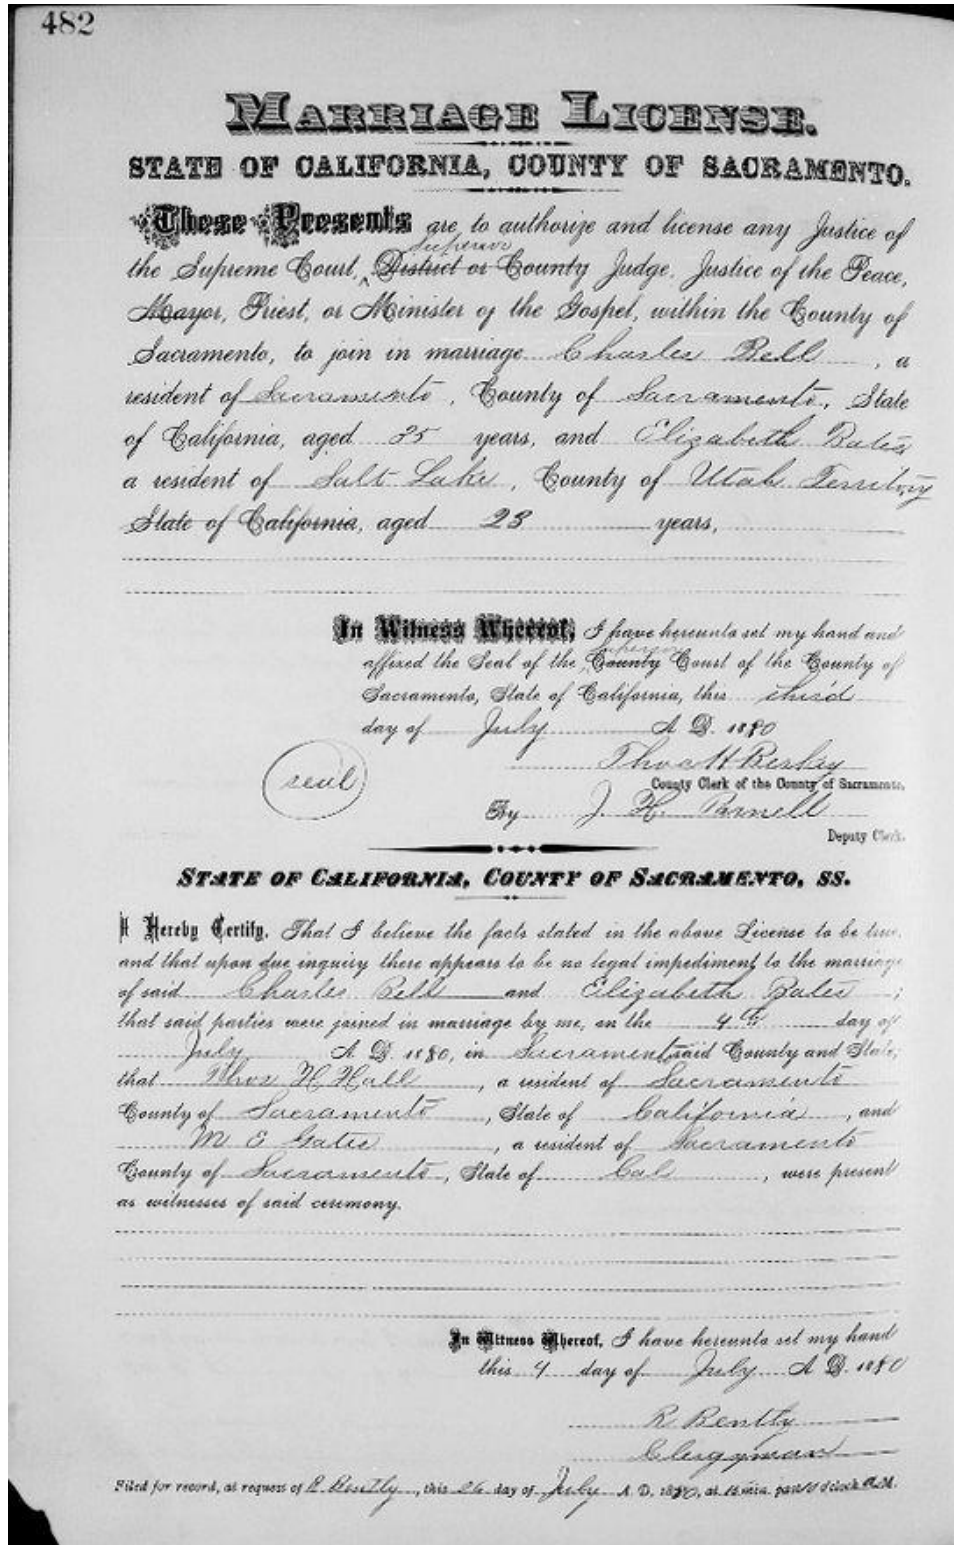 482
MARRIAGE LICENSE.
STATE OF CALIFORNIA, COUNTY OF SACRAMENTO.
These Presents are to authorize and license any Justice of
Superior
the Supreme Court, District or County Judge, Justice of the Peace,
Mayor, Priest, or Minister of the Gospel, within the County of
Sacramento, to join in marriage Charles Bell, a
resident of Sacramento, County of Sacramento, State
of California, aged 25 years, and Elizabeth Bates
a resident of Salt Lake, County of Utah Territory
State of California, aged 23 years,
In Witness Whereof, I have hereunto set my hand and
Superior
affixed the Seal of the County Court of the County of
Sacramento, State of California, this third
day of July A. D. 1880
Thos H Berkey
County Clerk of the County of Sacramento.
(seal)
By J. H. Parnell
Deputy Clerk.
STATE OF CALIFORNIA, COUNTY OF SACRAMENTO, SS.
I Hereby Certify, That I believe the facts stated in the above License to be true,
and that upon due inquiry there appears to be no legal impediment to the marriage
of said Charles Bell and Elizabeth Bates;
that said parties were joined in marriage by me, on the 4th day of
July A. D. 1880, in Sacramento said County and State;
that Thos H Hall, a resident of Sacramento
County of Sacramento, State of California, and
M E Gates, a resident of Sacramento
County of Sacramento, State of Cal, were present
as witnesses of said ceremony.
In Witness Whereof, I have hereunto set my hand
this 4 day of July A. D. 1880
R Bently
Clergyman
Filed for record, at request of R. Bently, this 26 day of July A. D. 1880, at 15 min. past o'clock A.M.